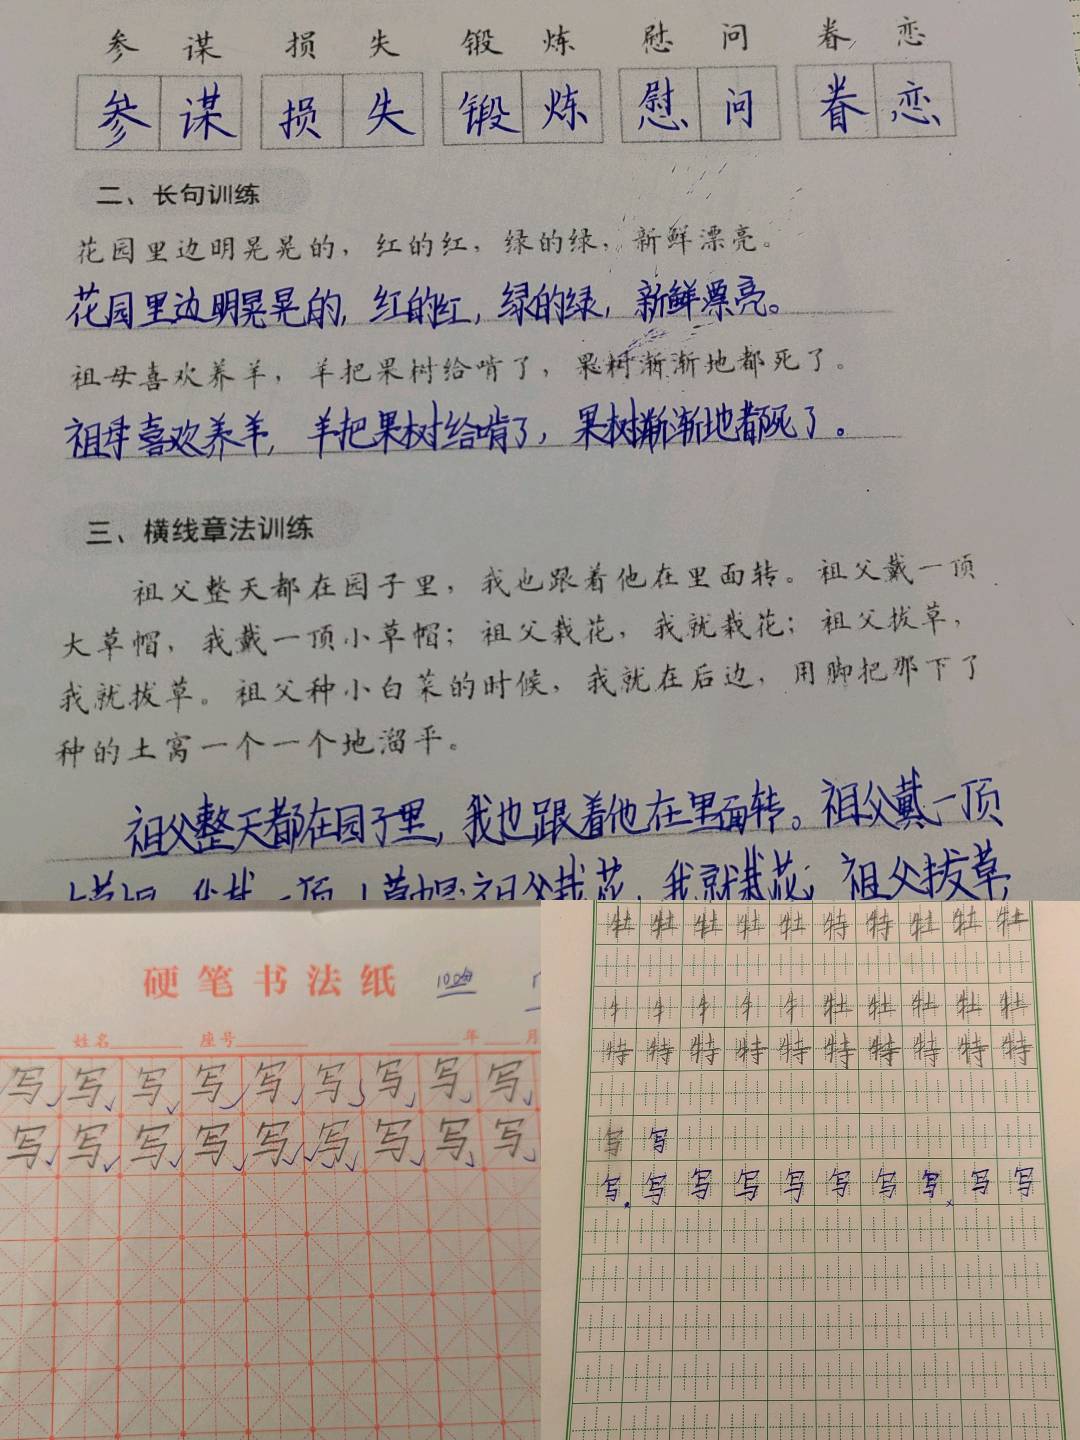 参谋 损失 锻炼 慰问 眷恋
参谋 损失 锻炼 慰问 眷恋
二、长句训练
花园里边明晃晃的，红的红，绿的绿，新鲜漂亮。
花园里边明晃晃的，红的红，绿的绿，新鲜漂亮。
祖母喜欢养羊，羊把果树给啃了，果树渐渐地都死了。
祖母喜欢养羊，羊把果树给啃了，果树渐渐地都死了。
三、横线章法训练
祖父整天都在园子里，我也跟着他在里面转。祖父戴一顶
大草帽，我戴一顶小草帽；祖父栽花，我就栽花；祖父拔草，
我就拔草。祖父种小白菜的时候，我就在后边，用脚把那下了
种的土窝一个一个地溜平。
祖父整天都在园子里，我也跟着他在里面转。祖父戴一顶
一顶小草帽；祖父栽花，我就栽花；祖父拔草，
硬笔书法纸
姓名 座号 年 月
写写写写写写写写写
写写写写写写写写写
牡牡牡牡牡特特牡牡牡
牛牛牛牛牛牡牡牡牡牡
特特特特特特特特特特
写写
写写写写写写写写写写